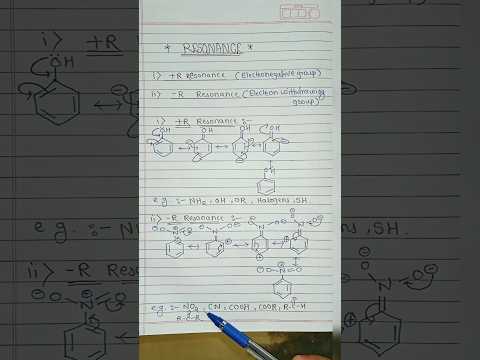 * RESONANCE *
i> +R Resonance (Electronegative group)
ii> -R Resonance (Electron withdrawing group)
i> +R Resonance :-
e.g. :- NH2, OH, OR, Halogens, SH.
ii> -R Resonance :-
e.g. :- NO2, CN, COOH, COOR, R-C-H
R-C-R